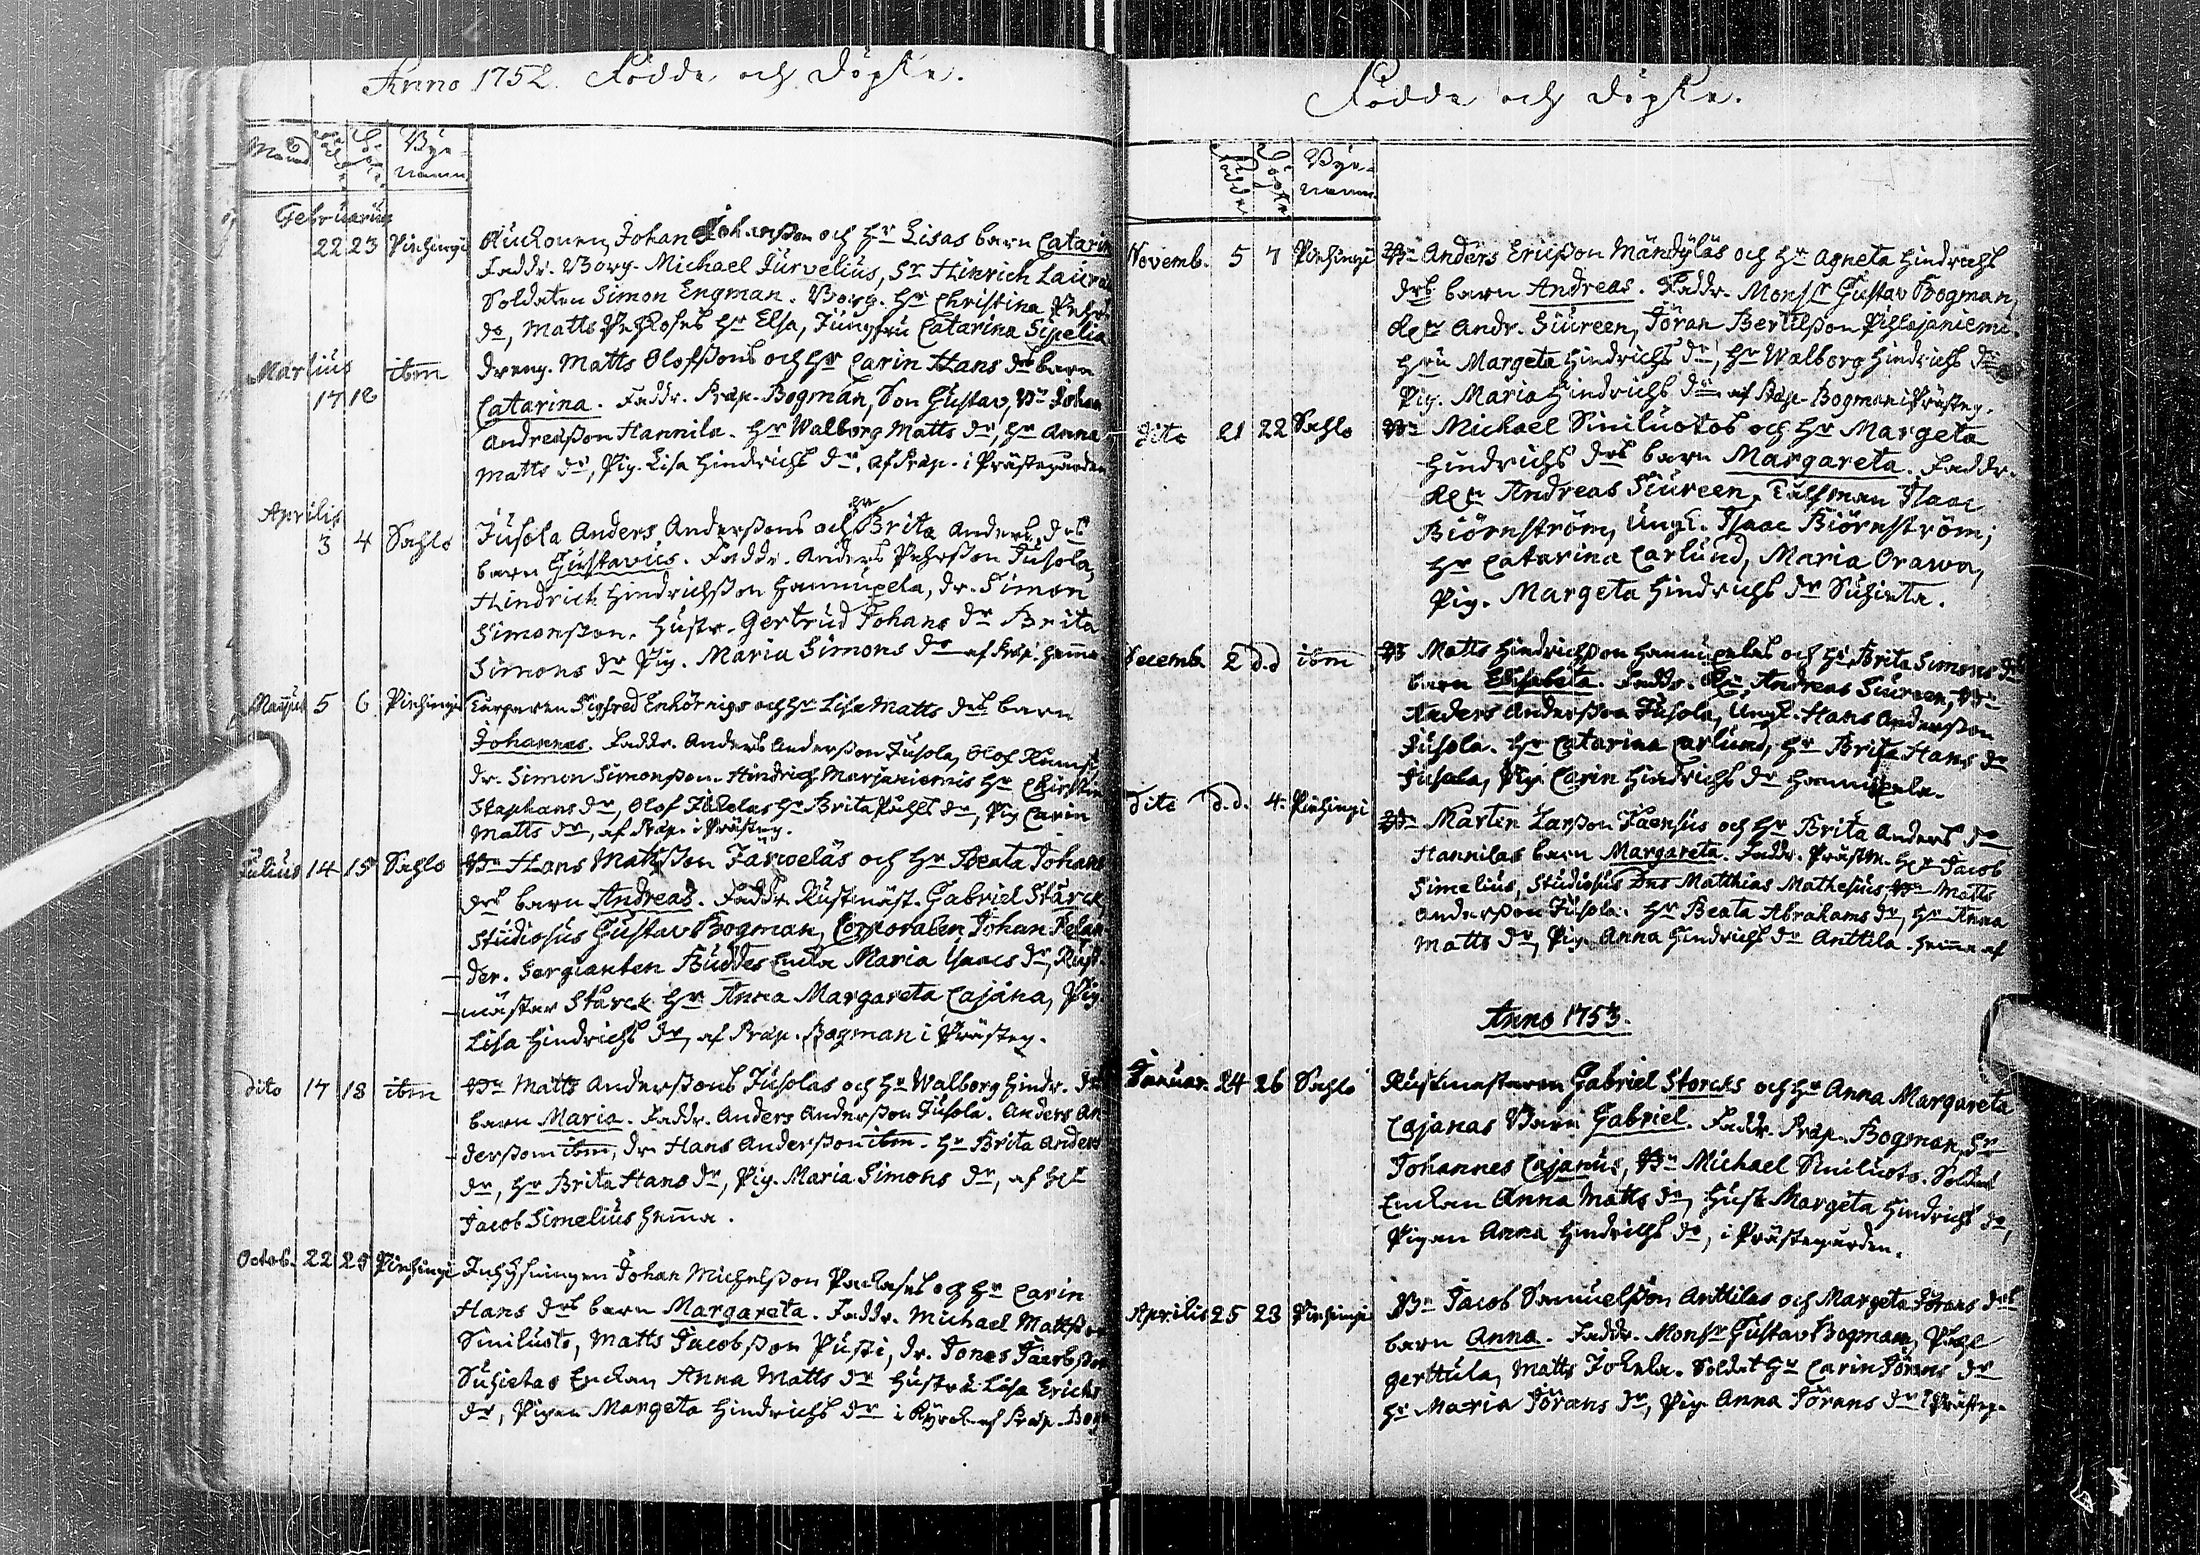 Anno 1752. Födde och Döpte.
Månad Födde Döpte Byenamn
Februarius
22 23 Pirhingi Johan Johansson och Hr Lisas barn Catarin
Faddr. Borg. Michael Turvelius, Sr Hinrich
Soldaten Simon Engman. Borg. Hr Christina Pehrs
dr, Matts Hr Elsa, Jungfru Catarina
Martius
17 18 ibm Dreng. Matts Olofssons och Hr Carin Hans drs barn
Catarina. Faddr. Præp. Bogman, Son Gustav, Bn Johan
Andersson Hannila. Hr Walborg Matts dr, Hr Anna
Matts dr, Pig. Lisa Hindrichs dr, af Præp. i Prästegården
Aprilis
3 4 Sahlo Jusola Anders Anderssons och Hr Brita Anders drs
barn Gustavus. Faddr. Anders Pehrsson Jusola,
Hindrich Hindrichsson Hannukela, dr. Simon
Simonsson. Hustr. Gertrud Johans dr Brita
Simons dr Pig. Maria Simons dr af Præp. hemma
Majus 5 6 Pirhingi Sigfred Enhörnigs och Hr Lisa Matts drs barn
Johannes. Faddr. Anders Andersson Jusola, Olof
dr. Simon Simonsson. Hindrich Marjaniemis Hr Christin
Staphans dr, Olof Hr Brita dr, Pig Carin
Matts dr, af Præp. i Prästeg.
Julius 14 15 Sahlo Bn Hans Mattsson Jarweläs och Hr Beata Johans
drs barn Andreas. Faddr. Rustmäst. Gabriel Starck
Studiosus Gustav Bogman, Corporalen Johan Relan-
-der. Sergianten Buddes Enka Maria Isaacs dr, Rust-
-mästar Starck Hr Anna Margareta Cajana, Pig.
Lisa Hindrichs dr, af Præp. Bogman i Prästeg.
dito 17 18 ibm Bn Matts Anderssons Jusolas och Hr Walborg Hindr. drs
barn Maria. Faddr. Anders Andersson Jusola. Anders An-
-dersson ibm, dr Hans Andersson ibm. Hr Brita Anders
dr, Hr Brita Hans dr, Pig. Maria Simons dr, af Hr
Jacob Simelius hemma.
Octob. 22 25 Pirhingi Inhysningen Johan Michelsson och Hr Carin
Hans drs barn Margareta. Faddr. Michael Mattsson
Siniluoto, Matts Jacobsson Pussi, dr. Jonas Jacobsson
Enkan Anna Matts dr Hustru Lisa Erichs
dr, Pigan Margeta Hindrichs dr i Kyrck. af Præp. Bog
Födde och Döpte.
Födde Döpte Byenamn
Novemb. 5 7 Pirhingi Bn Anders Ericsson Mändyläs och Hr Agneta Hindrichs
drs barn Andreas. Faddr. Monsr Gustav Bogman,
Andr. Siureen, Jöran Bertilsson Pihlajaniemi.
Hru Margeta Hindrichs dr, Hr Walborg Hindrichs dr
Pig. Maria Hindrichs dr af Præp. Bogman i Prästeg.
dito 21 22 Sahlo Bn Michael Siniluotos och Hr Margeta
Hindrichs drs barn Margareta. Faddr.
Andreas Siureen, Isaac
Biörnström, Ungk. Isaac Biörnström;
Hr Catarina Carlund, Maria Orawa,
Pig. Margeta Hindrichs dr
Decemb. 2 d.d ibm Bn Matts Hindrichsson Hannukelas och Hr Brita Simons drs
barn Elisabeta. Faddr. Andreas Siureen, Bn
Anders Andersson Jusola, Ungk. Hans Andersson
Jusola. Hr Catarina Carlund, Hr Brita Hans dr
Jusola, Pig Carin Hindrichs dr Hannukela.
dito d.d. 4. Pirhingi Bn Martin Larsson Jaensus och Hr Brita Anders dr
Hannilas barn Margareta. Faddr. Hr Jacob
Simelius, Studiosus Dns Matthias Mathesius, Bn Matts
Andersson Jusola. Hr Beata Abrahams dr, Hr Anna
Matts dr, Pig. Anna Hindrichs dr Anttila. hemma af
Anno 1753.
Januar. 24 26 Sahlo Rustmästaren Gabriel Storcks och Hr Anna Margareta
Cajanas Barn Gabriel. Faddr. Præp. Bogman, Hr
Johannes Cajanus, Bn Michael Siniluoto. Soldat
Enkan Anna Matts dr, Hust. Margeta Hindrichs dr,
Pigan Anna Hindrichs dr, i Prästegården.
Aprilis 25 23 Pirhingi Bn Jacob Samuelsson Anttilas och Margeta Jörans drs
barn Anna. Faddr. Monsr Gustav Bogman,
Gerttula, Matts Jokela. Soldat Hr Carin Jörans dr
Hr Maria Jörans dr, Pig. Anna Jörans dr i Prästeg.